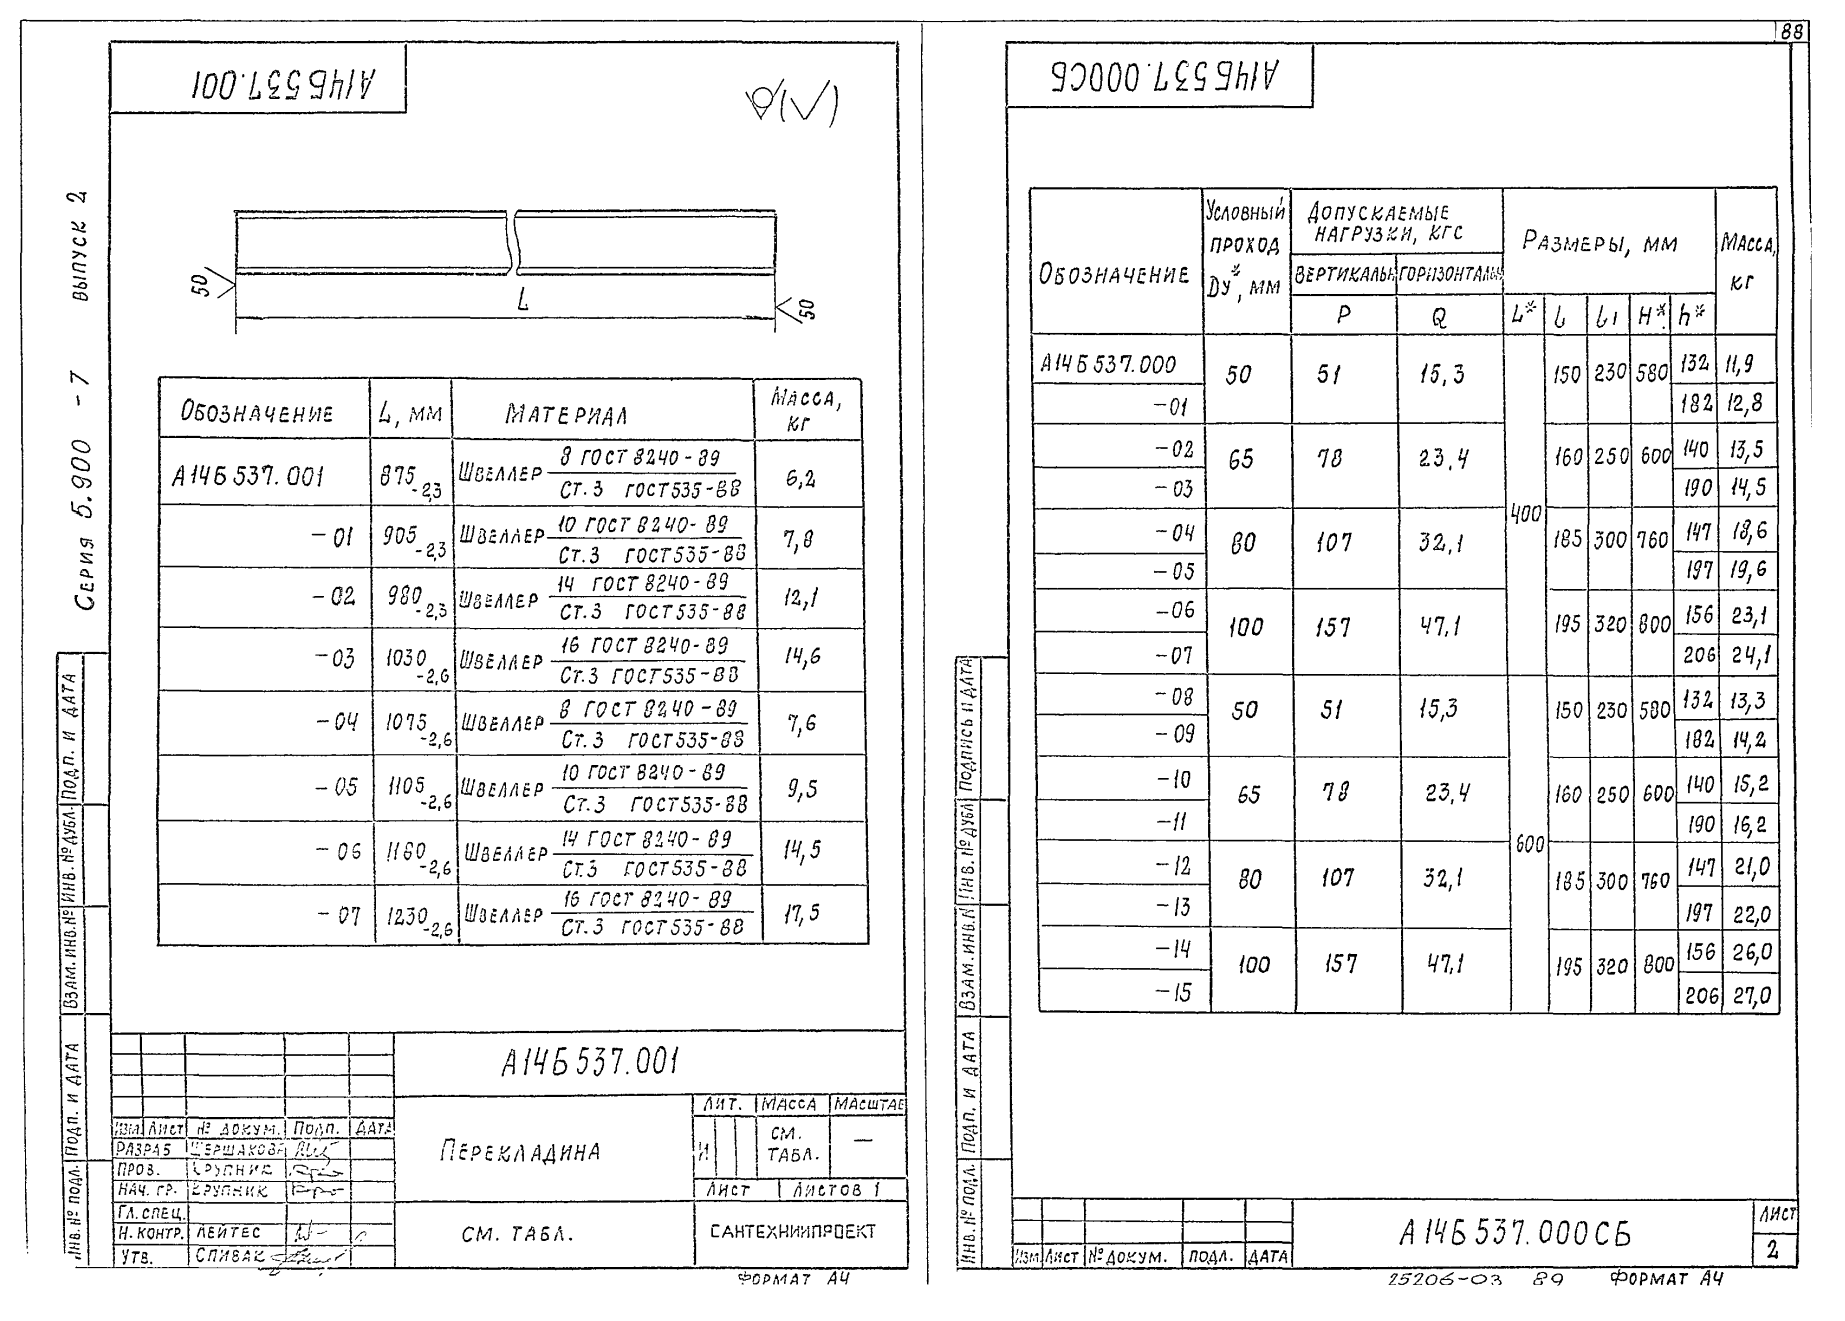 88
А14Б537.001
√(√)
Серия 5.900-7 выпуск 2
50
L
50
Обозначение | L, мм | Материал | Масса, кг
А14Б537.001 | 875 -2,3 | Швеллер 8 ГОСТ 8240-89 / Ст.3 ГОСТ535-88 | 6,2
-01 | 905 -2,3 | Швеллер 10 ГОСТ 8240-89 / Ст.3 ГОСТ535-88 | 7,8
-02 | 980 -2,3 | Швеллер 14 ГОСТ 8240-89 / Ст.3 ГОСТ535-88 | 12,1
-03 | 1030 -2,6 | Швеллер 16 ГОСТ 8240-89 / Ст.3 ГОСТ535-88 | 14,6
-04 | 1075 -2,6 | Швеллер 8 ГОСТ 8240-89 / Ст.3 ГОСТ535-88 | 7,6
-05 | 1105 -2,6 | Швеллер 10 ГОСТ 8240-89 / Ст.3 ГОСТ535-88 | 9,5
-06 | 1180 -2,6 | Швеллер 14 ГОСТ 8240-89 / Ст.3 ГОСТ535-88 | 14,5
-07 | 1230 -2,6 | Швеллер 16 ГОСТ 8240-89 / Ст.3 ГОСТ535-88 | 17,5
Инв.№ подл. | Подп. и дата | Взам.инв.№ | Инв.№ дубл. | Подп. и дата
А14Б537.001
Изм. Лист № докум. Подп. Дата
Разраб Шершакова
Пров. Крупник
Нач. гр. Крупник
Гл.спец.
Н.контр. Лейтес
Утв. Спивак
Перекладина
Лит. Масса Масштаб
И см. табл. —
Лист Листов 1
см. табл.
САНТЕХНИИПРОЕКТ
Формат А4
А14Б537.000СБ
Обозначение | Условный проход Dу*, мм | Допускаемые нагрузки, кгс | Размеры, мм | Масса, кг
вертикальн P | горизонтальн Q | L* | l | l1 | H* | h*
А14Б537.000 | 50 | 51 | 15,3 | 400 | 150 | 230 | 580 | 132 | 11,9
-01 | 182 | 12,8
-02 | 65 | 78 | 23,4 | 160 | 250 | 600 | 140 | 13,5
-03 | 190 | 14,5
-04 | 80 | 107 | 32,1 | 185 | 300 | 760 | 147 | 18,6
-05 | 197 | 19,6
-06 | 100 | 157 | 47,1 | 195 | 320 | 800 | 156 | 23,1
-07 | 206 | 24,1
-08 | 50 | 51 | 15,3 | 600 | 150 | 230 | 580 | 132 | 13,3
-09 | 182 | 14,2
-10 | 65 | 78 | 23,4 | 160 | 250 | 600 | 140 | 15,2
-11 | 190 | 16,2
-12 | 80 | 107 | 32,1 | 185 | 300 | 760 | 147 | 21,0
-13 | 197 | 22,0
-14 | 100 | 157 | 47,1 | 195 | 320 | 800 | 156 | 26,0
-15 | 206 | 27,0
Инв.№ подл. | Подп. и дата | Взам.инв.№ | Инв.№ дубл | Подпись и дата
Изм. Лист № докум. Подл. Дата
А14Б537.000СБ
Лист
2
25206-03 89 Формат А4